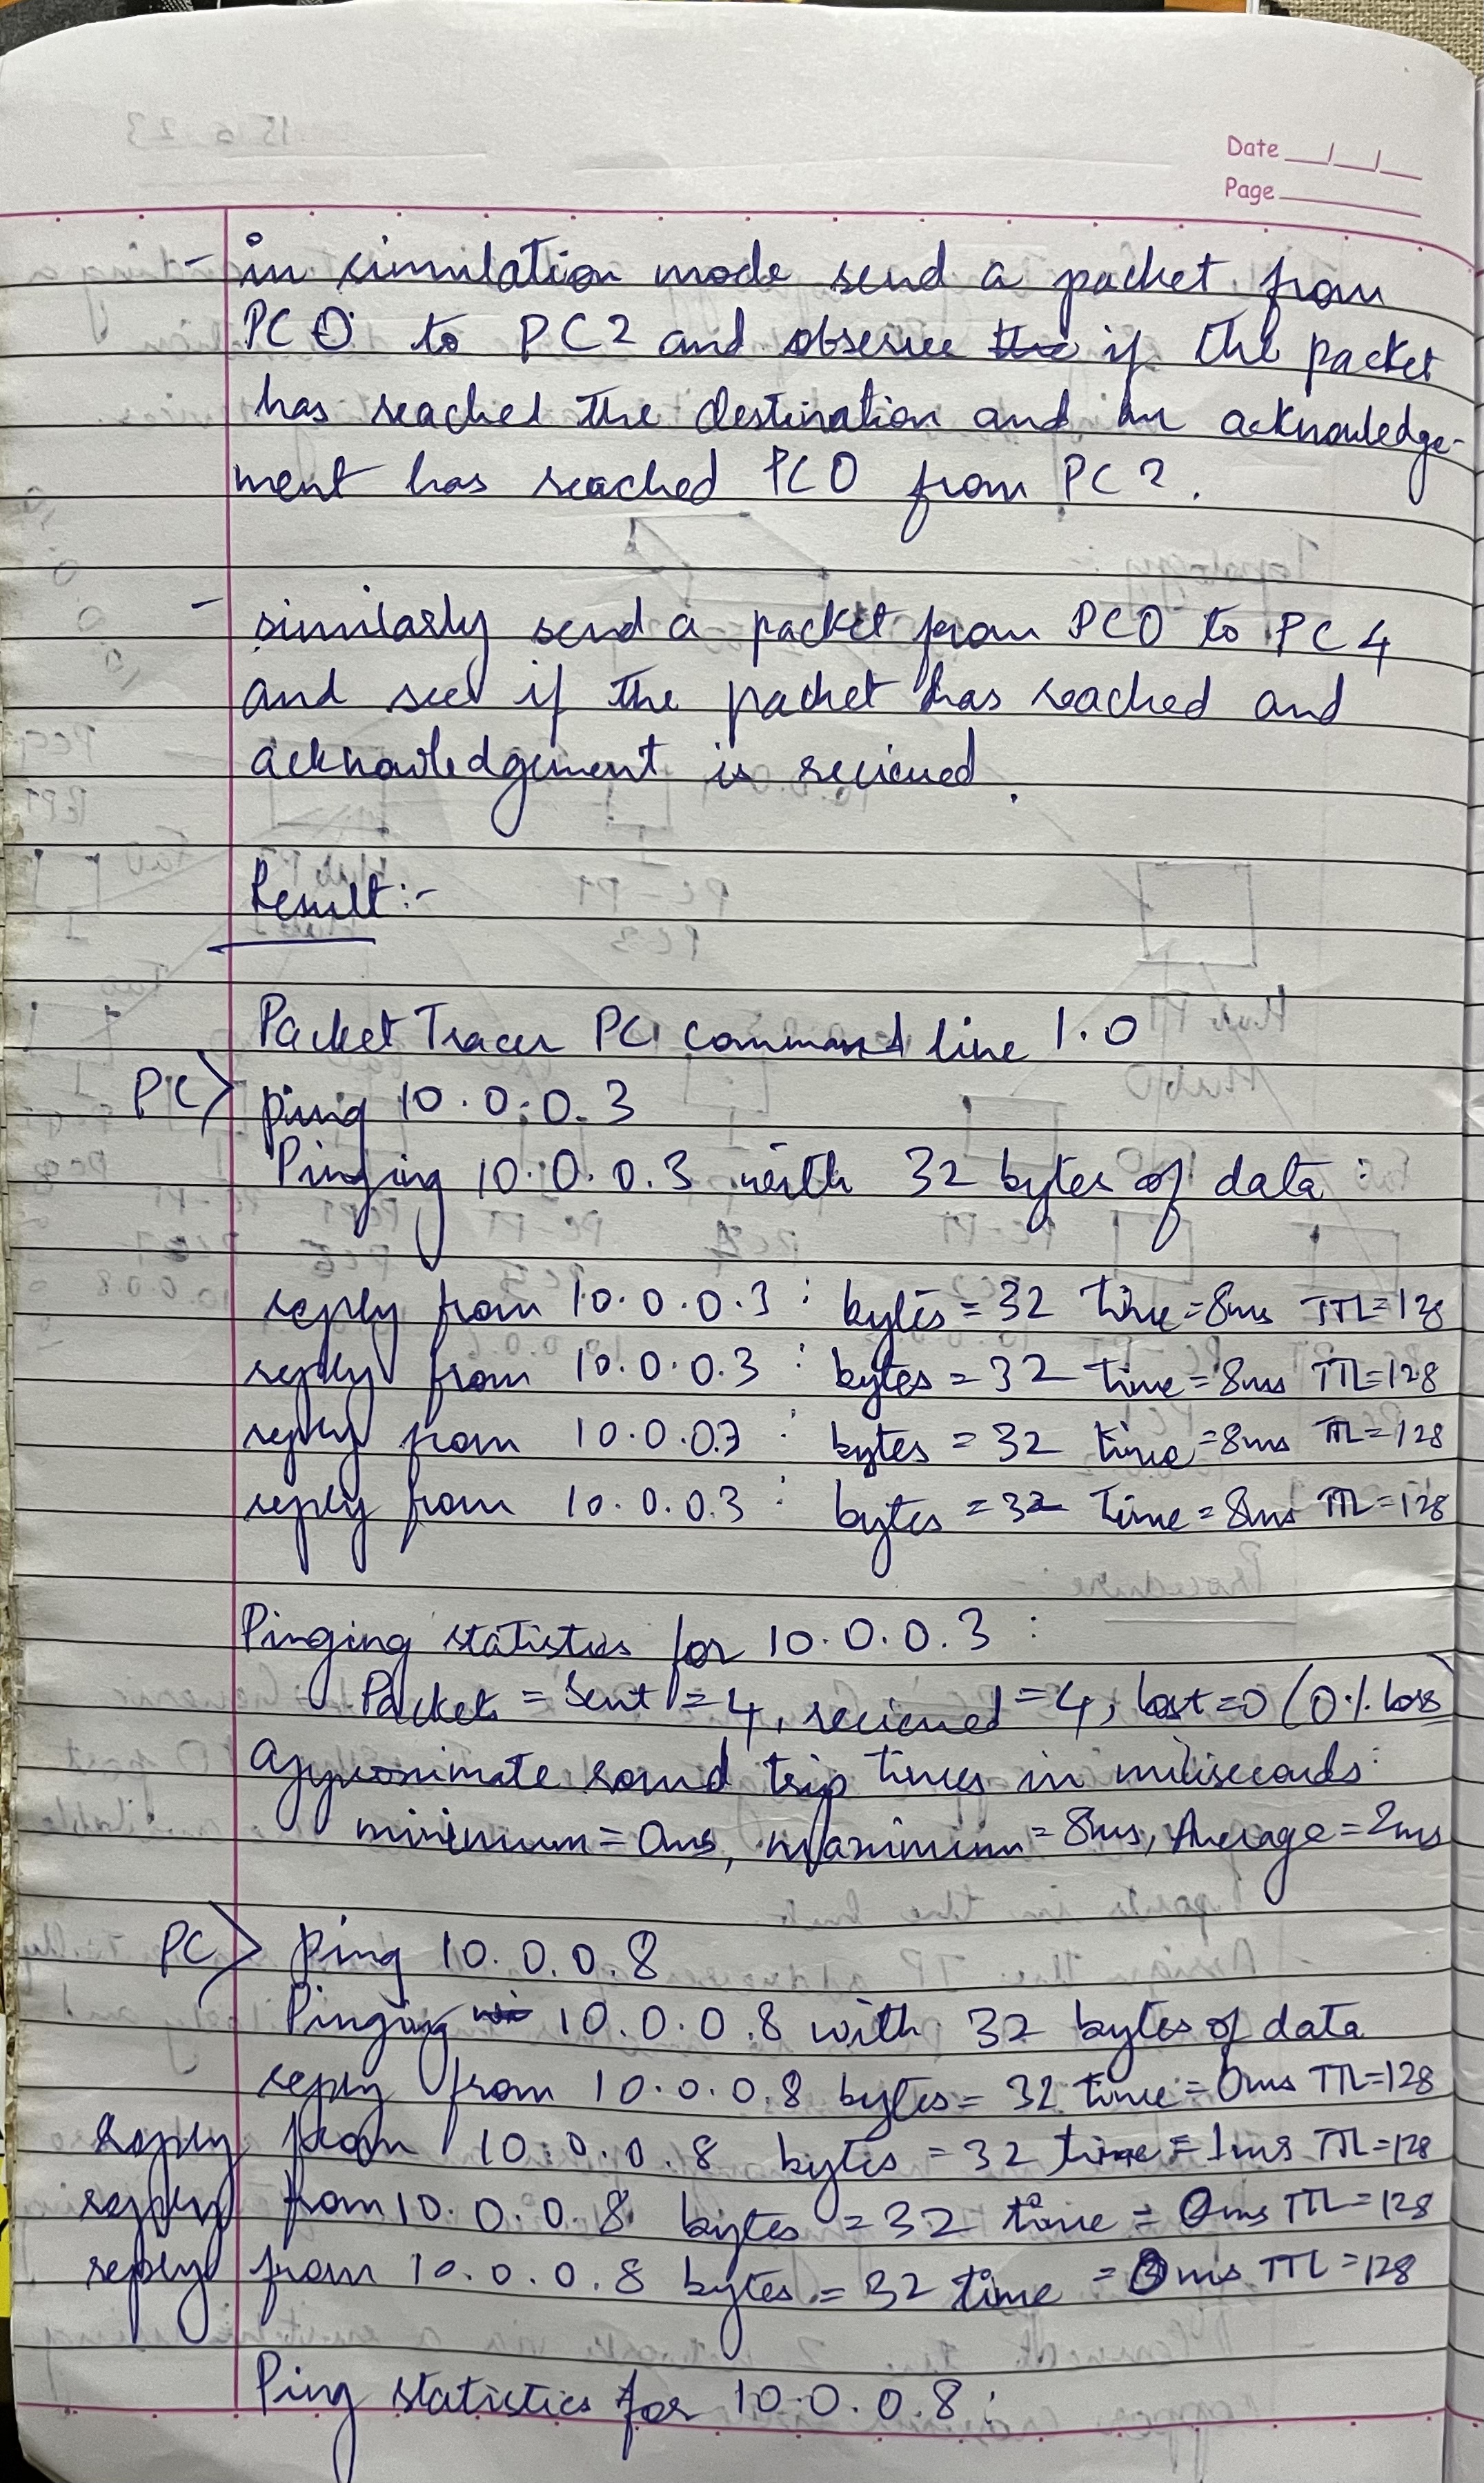 Date __/__/__
Page
- in simulation mode send a packet from
PC0 to PC2 and observe if the packet
has reached the destination and an acknowledge-
ment has reached PC0 from PC2.
- similarly send a packet from PC0 to PC4
and see if the packet has reached and
acknowledgement is recieved.
Result:-
Packet Tracer PC command line 1.0
PC> ping 10.0.0.3
Pinging 10.0.0.3 with 32 bytes of data:
reply from 10.0.0.3: bytes=32 time=8ms TTL=128
reply from 10.0.0.3: bytes=32 time=8ms TTL=128
reply from 10.0.0.3: bytes=32 time=8ms TTL=128
reply from 10.0.0.3: bytes=32 time=8ms TTL=128
Pinging statistics for 10.0.0.3:
Packets = Sent = 4, recieved = 4, lost=0 (0% loss)
Approximate round trip times in miliseconds:
minimum=0ms, maximum=8ms, Average=2ms
PC> Ping 10.0.0.8
Pinging 10.0.0.8 with 32 bytes of data
reply from 10.0.0.8 bytes=32 time=0ms TTL=128
reply from 10.0.0.8 bytes=32 time=1ms TTL=128
reply from 10.0.0.8 bytes=32 time=0ms TTL=128
reply from 10.0.0.8 bytes=32 time = ms TTL=128
Ping statistics for 10.0.0.8: